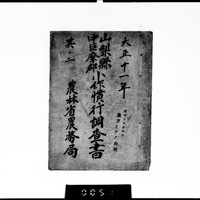 大正十一年
山梨縣
中巨摩郡
小作慣行調査書
其ノ二
農林省農務局
005